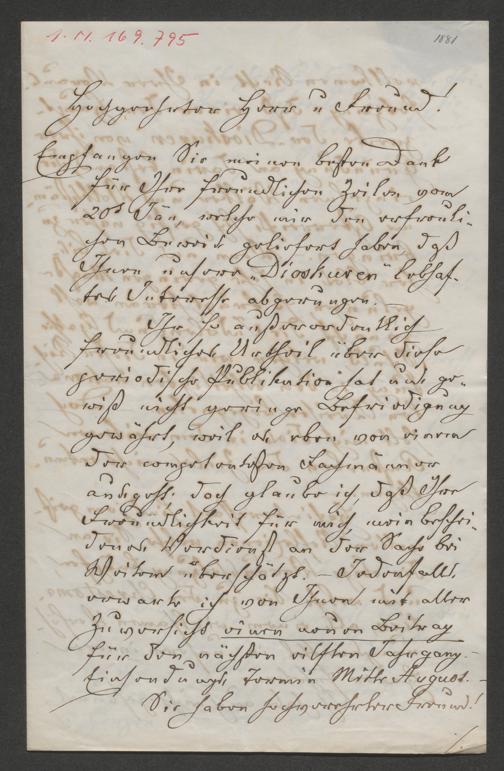 I. N. 169.795
1881
Hochgeehrter Herr u Freund!
Empfangen Sie meinen besten Dank
für Ihre freundlichen Zeilen vom
20t Jän, welche mir den erfreuli-
chen Beweis geliefert haben, daß
Ihnen unsere „Dioskuren" lebhaf-
tes Interesse abgerungen. —
Ihr so außerordentlich
freundliches Urtheil über diese
periodische Publikation hat uns ge-
wiß nicht geringe Befriedigung
gewährt, weil es eben von einem
der competentesten Fachmänner
ausgeht, doch glaube ich, daß Ihre
Freundlichkeit für mich mein beschei-
denes Verdienst an der Sache bei
Weitem überschätzt. — Jedenfalls
erwarte ich von Ihnen mit aller
Zuversicht einen neuen Beitrag
für den nächsten eilften Jahrgang. —
Einsendungs termin Mitte August. —
Sie haben hochverehrter Freund!